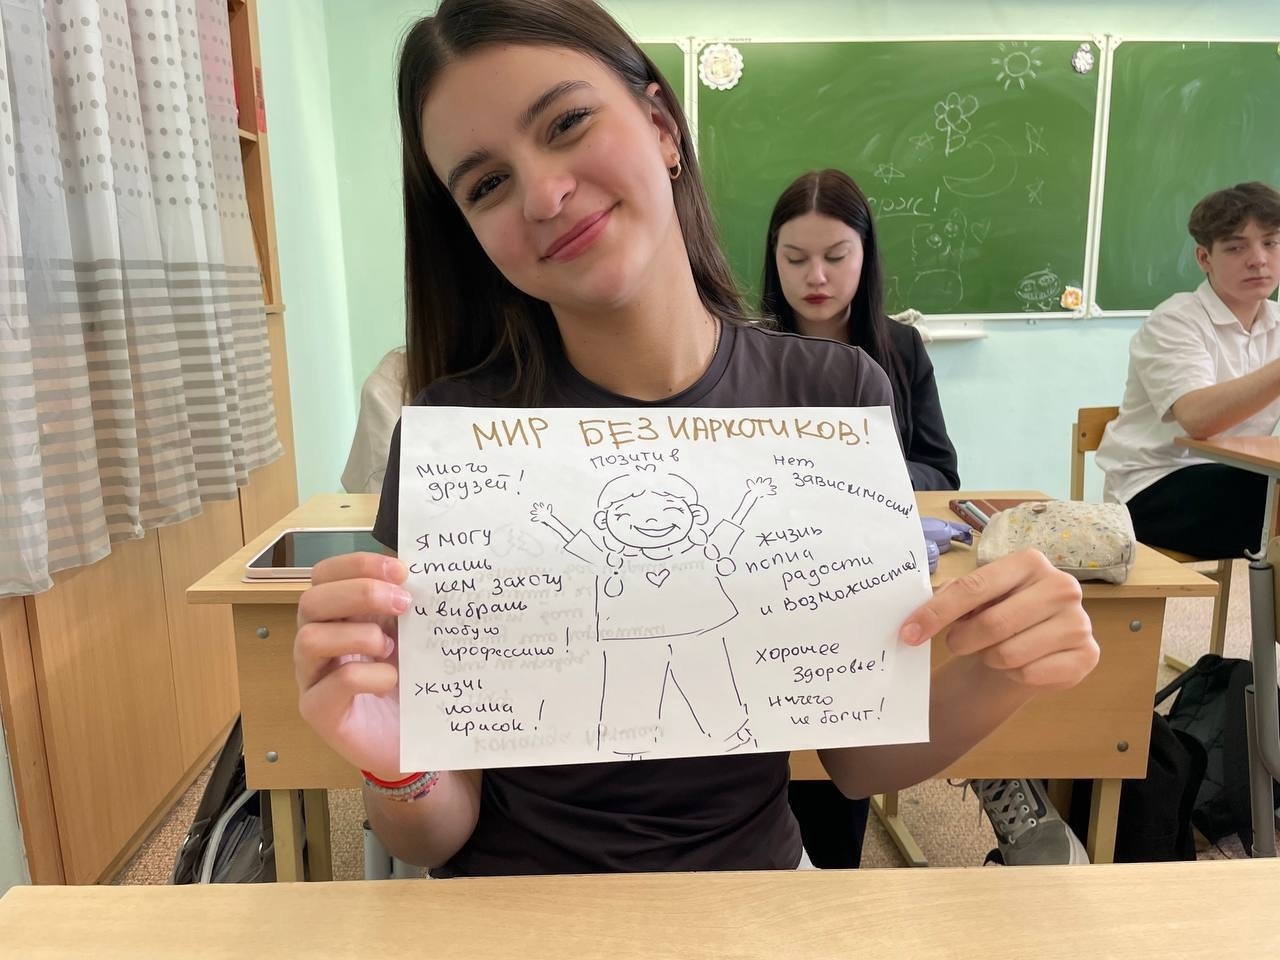 МИР БЕЗ НАРКОТИКОВ!
позитив
много
друзей!
я могу
стать
кем захочу
и выбрать
любую
профессию!
жизнь
полна
красок!
нет
зависимости!
жизнь
полна
радости
и возможностей!
хорошее
здоровье!
ничего
не болит!